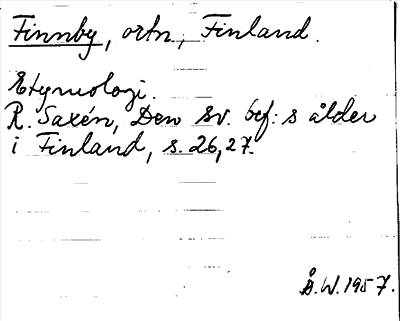 Finnby, ortn., Finland.
Etymologi.
R. Saxén, Den sv. bef:s ålder
i Finland, s. 26, 27.
Å.W. 1957.